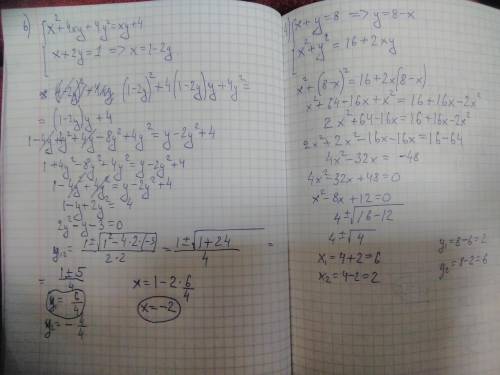 b) { x² + 4xy + 4y² = xy + 4
x + 2y = 1 => x = 1-2y
(1-2y)² + 4(1-2y)y + 4y² =
= (1-2y)y + 4
1 + 4y² - 8y² + 4y² = y - 2y² + 4
1-y+2y² = 4
2y² - y - 3 = 0
y₁,₂ = 1±√(1²-4·2·(-3)) / 2·2 = 1±√(1+24) / 4 =
= 1±5 / 4
y = 6/4
x = 1-2·6/4
x = -2
y₂ = -4/4
{ x + y = 8 => y = 8-x
x² + y² = 16 + 2xy
x² + (8-x)² = 16 + 2x(8-x)
x² + 64 - 16x + x² = 16 + 16x - 2x²
2x² + 64 - 16x = 16 + 16x - 2x²
2x² + 2x² - 16x - 16x = 16 - 64
4x² - 32x = -48
4x² - 32x + 48 = 0
x² - 8x + 12 = 0
4±√(16-12)
4±√4
x₁ = 4+2 = 6
x₂ = 4-2 = 2
y₁ = 8-6 = 2
y₂ = 8-2 = 6